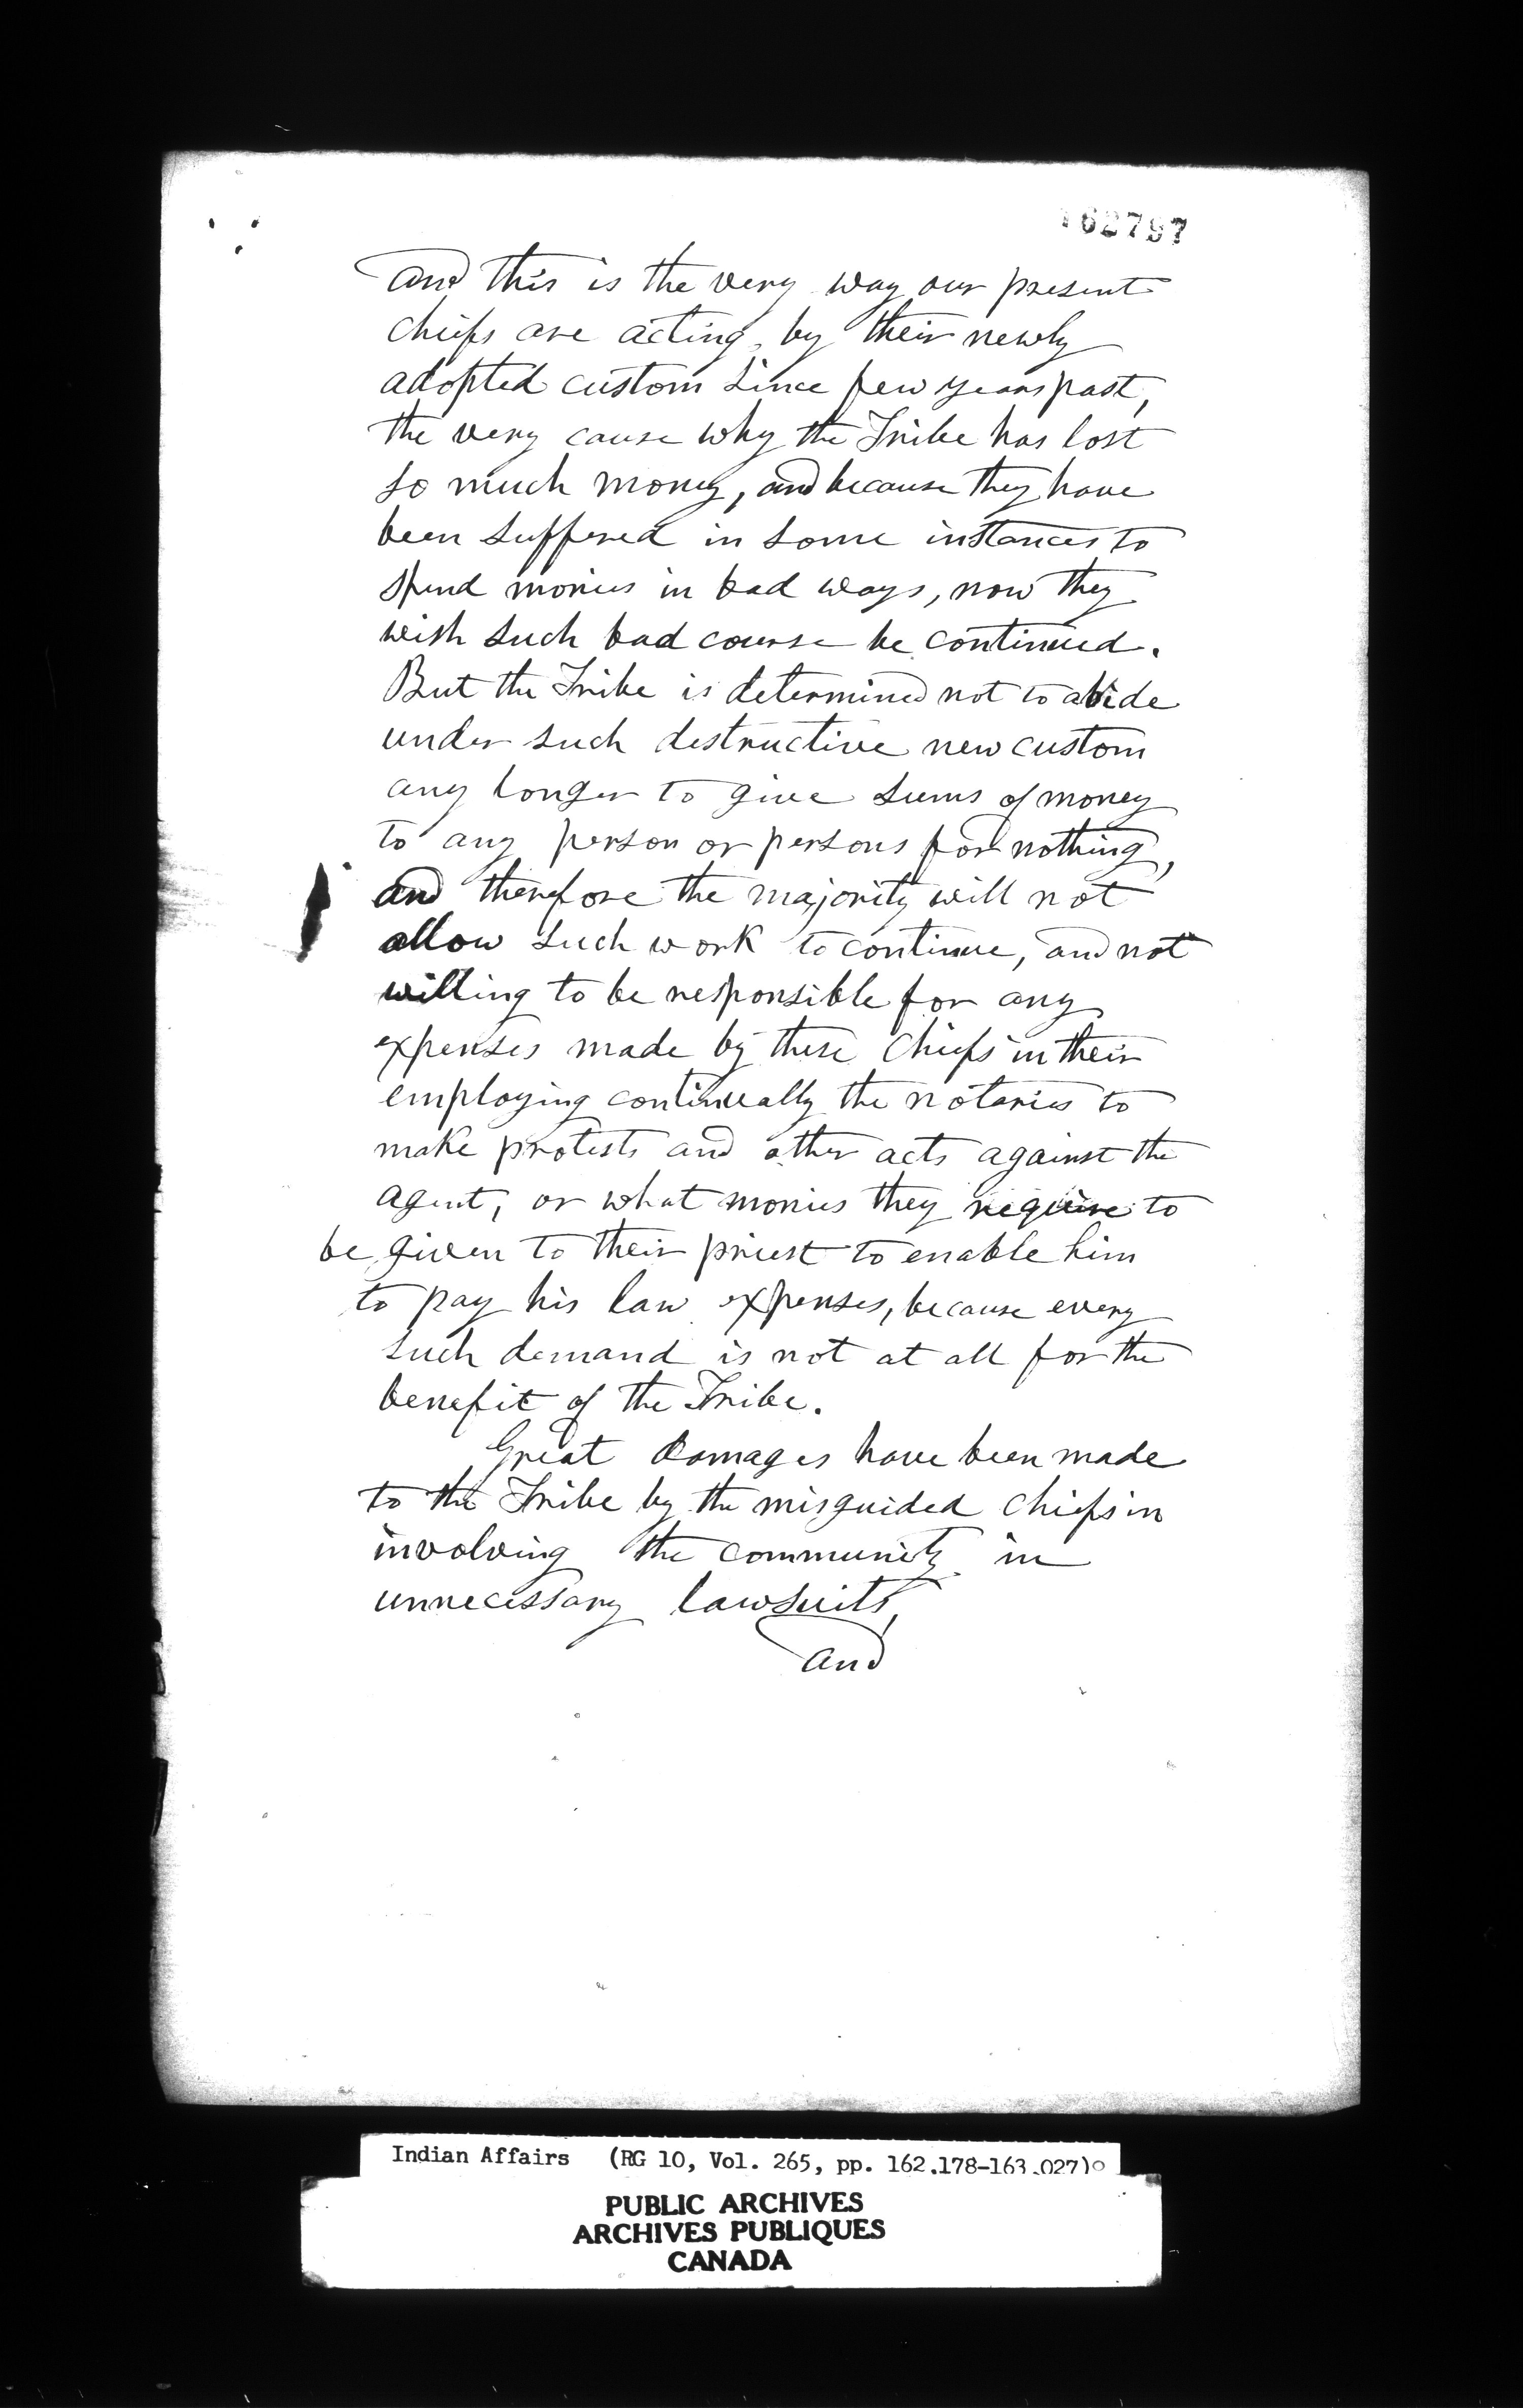 162797
and this is the very way our present
chiefs are acting, by their newly
adopted custom since few years past,
the very cause why the Tribe has lost
so much money, and because they have
been suffered in some instances to
spend monies in bad ways, now they
wish such bad course be continued.
But the Tribe is determined not to abide
under such destructive new custom
any longer to give sums of money
to any person or persons for nothing,
and therefore the majority will not
allow such work to continue, and not
willing to be responsible for any
expenses made by these chiefs in their
employing continually the notaries to
make protests and other acts against the
agent, or what monies they require to
be given to their priest to enable him
to pay his law expenses, because every
such demand is not at all for the
benefit of the Tribe.
Great damages have been made
to the Tribe by the misguided chiefs in
involving the community in
unnecessary lawsuits,
and
Indian Affairs (RG 10, Vol. 265, pp. 162.178-163.027)
PUBLIC ARCHIVES
ARCHIVES PUBLIQUES
CANADA